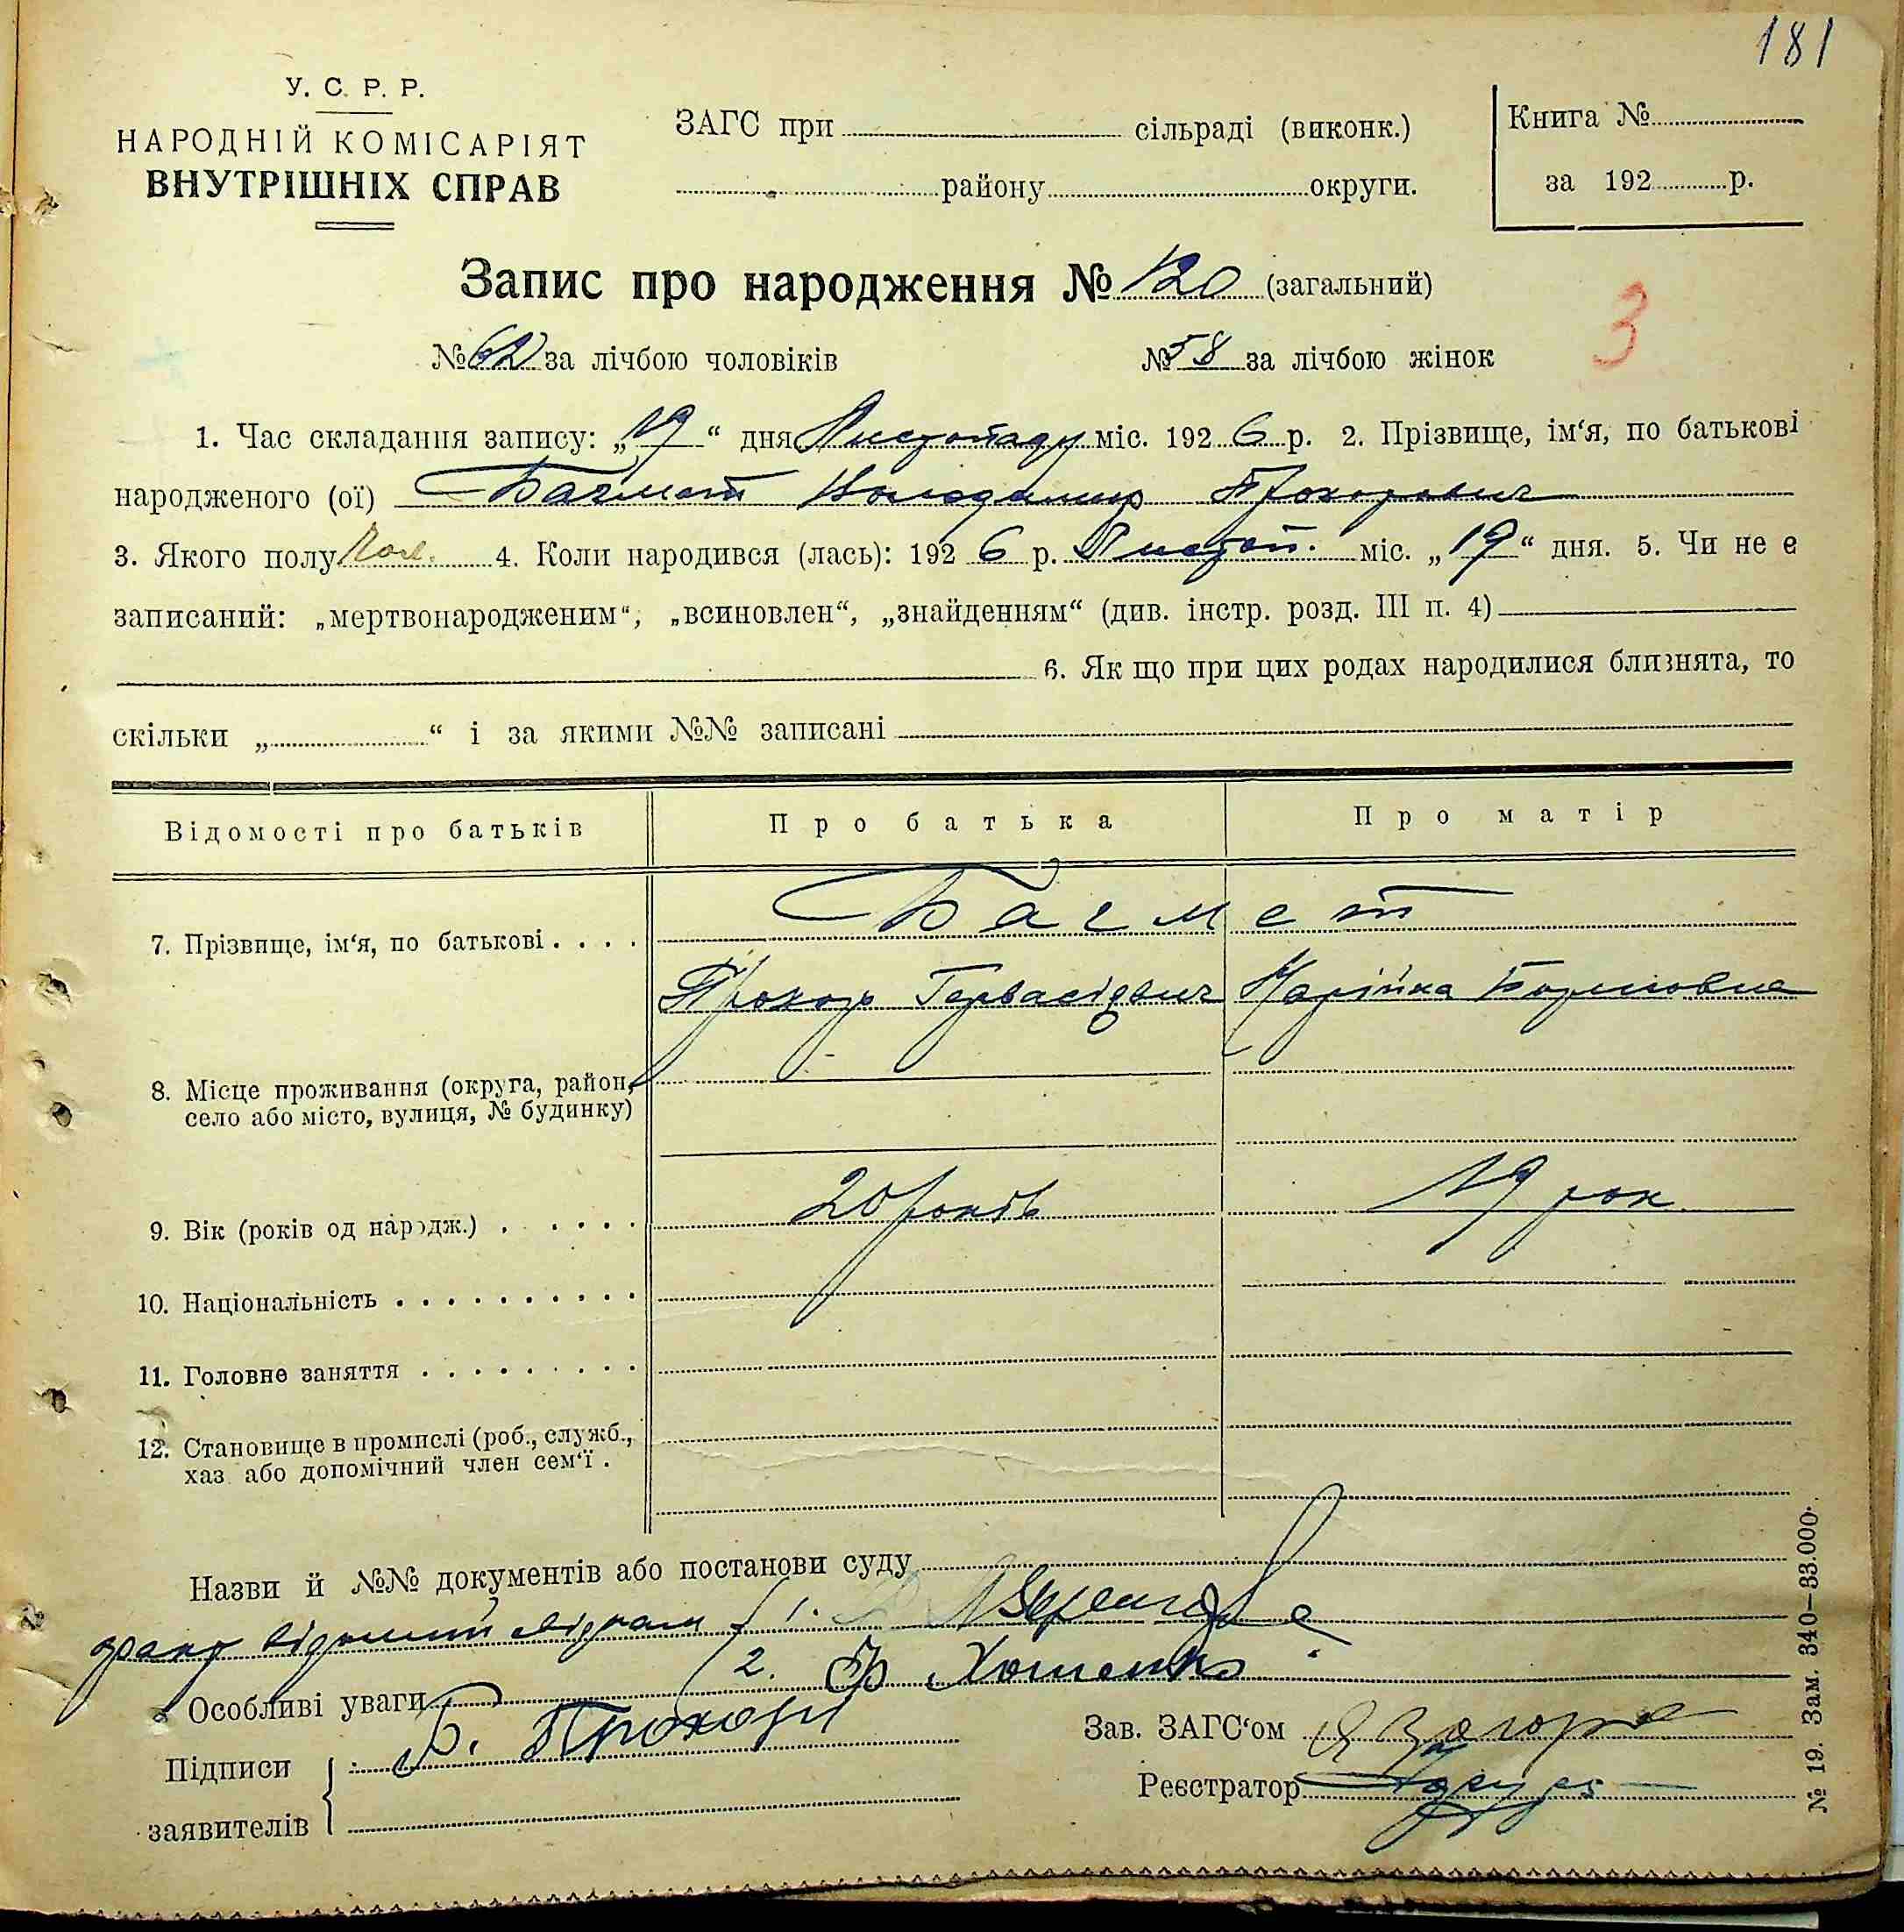 181
У. С. Р. Р.
НАРОДНІЙ КОМІСАРІЯТ
ВНУТРІШНІХ СПРАВ
ЗАГС при сільраді (виконк.)
району округи.
Книга №
за 192 р.
Запис про народження № 120 (загальний)
3
№ 62 за лічбою чоловіків № 58 за лічбою жінок
1. Час складання запису: „19“ дня Листопаду міс. 1926 р. 2. Прізвище, ім‘я, по батькові
народженого (ої) Багмет Володимир Прохорович
3. Якого полу чол. 4. Коли народився (лась): 1926 р. Листоп. міс. „19“ дня. 5. Чи не є
записаний: „мертвонародженим“, „всиновлен“, „знайденням“ (див. інстр. розд. III п. 4)
6. Як що при цих родах народилися близнята, то
скільки „ “ і за якими №№ записані
Відомості про батьків Про батька Про матір
7. Прізвище, ім‘я, по батькові . . . . Багмет
Прохор Гервасієвич Марійка
8. Місце проживання (округа, район,
село або місто, вулиця, № будинку)
9. Вік (років од народж.) . . . . . 20 років 19 рок
10. Національність . . . . . . . . . .
11. Головне заняття . . . . . . . . .
12. Становище в промислі (роб., служб.,
хаз. або допомічний член сем‘ї .
Назви й №№ документів або постанови суду
факт відомий свідкам 1.
2. Хоменко
Особливі уваги
Підписи Б. Прохор
заявителів
Зав. ЗАГС‘ом
Реєстратор
№ 19. Зам. 340—33.000.